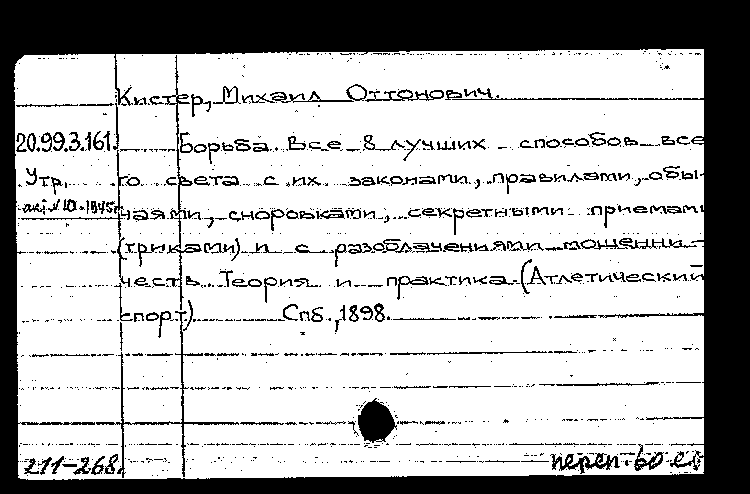 Кистер, Михаил Оттонович.
20.99.3.161. Борьба. Все 8 лучших способов все
Утр. го света с их законами, правилами, обы-
акт № 10-1945г. чаями, сноровками, секретными приемами
(триками) и с разоблачениями мошенни-
честв. Теория и практика. (Атлетический
спорт). Спб., 1898.
211-268.